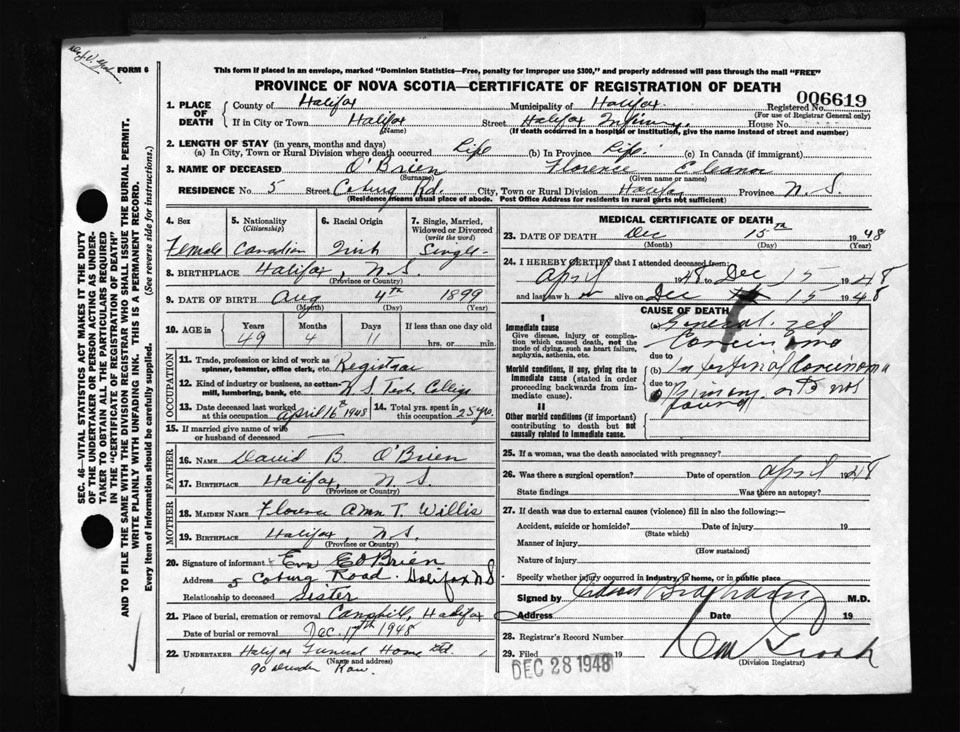 FORM 6
This form if placed in an envelope, marked "Dominion Statistics—Free, penalty for improper use $300," and properly addressed will pass through the mail "FREE"
PROVINCE OF NOVA SCOTIA—CERTIFICATE OF REGISTRATION OF DEATH
1. PLACE OF DEATH County of Halifax Municipality of Halifax Registered No. 006619
(For use of Registrar General only)
If in City or Town Halifax Street Halifax Infirmry House No.
(Name) (If death occurred in a hospital or institution, give the name instead of street and number)
2. LENGTH OF STAY (in years, months and days)
(a) In City, Town or Rural Division where death occurred Life (b) In Province Life. (c) In Canada (if immigrant)
3. NAME OF DECEASED O'Brien Florence Eleanor
(Surname) (Given name or names)
RESIDENCE No. 5 Street Coburg Rd. City, Town or Rural Division Halifax Province N.S.
Residence means usual place of abode. Post Office Address for residents in rural parts not sufficient)
4. Sex 5. Nationality (Citizenship) 6. Racial Origin 7. Single, Married, Widowed or Divorced (write the word)
Female Canadian Irish Single
8. BIRTHPLACE Halifax, N.S.
(Province or Country)
9. DATE OF BIRTH Aug 4th 1899
(Month) (Day) (Year)
10. AGE in Years Months Days If less than one day old
49 4 11 hrs. or min.
OCCUPATION
11. Trade, profession or kind of work as spinner, teamster, office clerk, etc. Registrar
12. Kind of industry or business, as cotton-mill, lumbering, bank, etc. N.S. Tech. College
13. Date deceased last worked at this occupation April 16th 1948 14. Total yrs. spent in this occupation 25 yrs.
15. If married give name of wife or husband of deceased —
FATHER
16. NAME David B. O'Brien
17. BIRTHPLACE Halifax, N.S.
(Province or Country)
MOTHER
18. MAIDEN NAME Florence Ann T. Willis
19. BIRTHPLACE Halifax, N.S.
(Province or Country)
20. Signature of informant Eva E O'Brien
Address 5 Coburg Road. Halifax N.S
Relationship to deceased Sister
21. Place of burial, cremation or removal Camphill, Halifax
Date of burial or removal Dec. 17th 1948
22. UNDERTAKER Halifax Funeral Home Ltd.
(Name and address)
90 Row.
MEDICAL CERTIFICATE OF DEATH
23. DATE OF DEATH Dec 15th 1948
(Month) (Day) (Year)
24. I HEREBY CERTIFY that I attended deceased from:
April 1948 to Dec 15 1948
and last saw h er alive on Dec 15 1948
CAUSE OF DEATH
I
Immediate cause
Give disease, injury or complication which caused death, not the mode of dying, such as heart failure, asphyxia, asthenia, etc.
(a) Generalized Carcinoma
due to
Morbid conditions, if any, giving rise to immediate cause (stated in order proceeding backwards from immediate).
(b) Intestinal Carcinoma
due to
(c) Primary not found
II
Other morbid conditions (if important) contributing to death but not causally related to immediate cause.
25. If a woman, was the death associated with pregnancy?
26. Was there a surgical operation? Date of operation April 1948
State findings Was there an autopsy?
27. If death was due to external causes (violence) fill in also the following:—
Accident, suicide or homicide? Date of injury 19
(State which)
Manner of injury
(How sustained)
Nature of injury
Specify whether injury occurred in industry, in home, or in public place
Signed by M.D.
Address Date 19
28. Registrar's Record Number
29. Filed 19
DEC 28 1948
(Division Registrar)
SEC. 46—VITAL STATISTICS ACT MAKES IT THE DUTY
OF THE UNDERTAKER OR PERSON ACTING AS UNDER-
TAKER TO OBTAIN ALL THE PARTICULARS REQUIRED
IN THE "CERTIFICATE OF REGISTRATION OF DEATH"
AND TO FILE THE SAME WITH THE DIVISION REGISTRAR WHO SHALL ISSUE THE BURIAL PERMIT.
WRITE PLAINLY WITH UNFADING INK. THIS IS A PERMANENT RECORD.
Every item of Information should be carefully supplied. (See reverse side for instructions.)